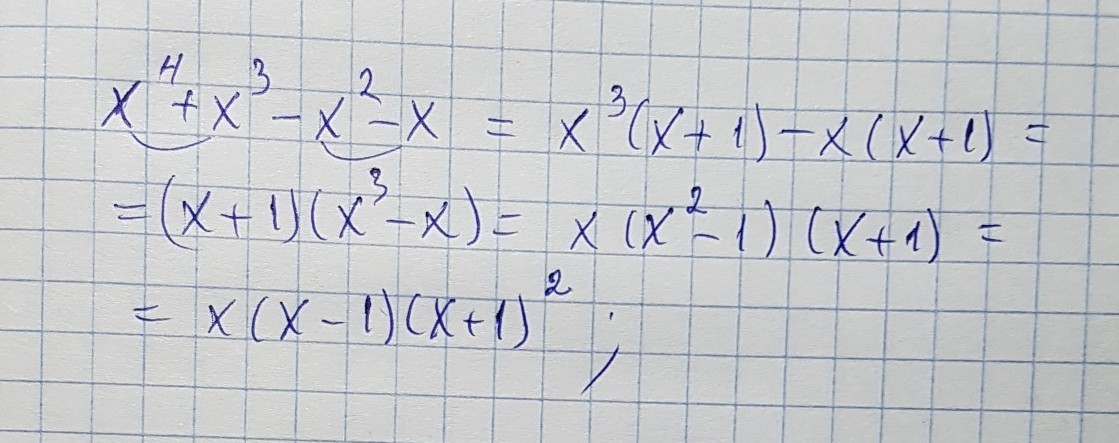 x⁴+x³-x²-x = x³(x+1)-x(x+1)=
=(x+1)(x³-x)= x(x²-1)(x+1)=
= x(x-1)(x+1)²;